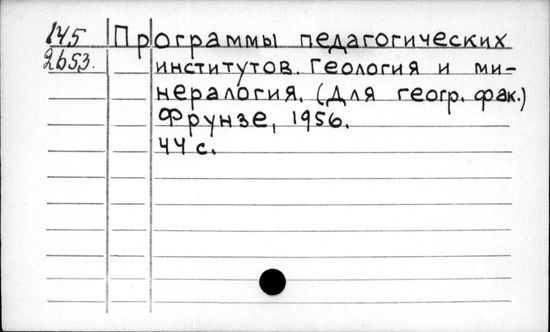 145 Программы педагогических
2653. институтов. Геология и ми-
нералогия. (Для геогр. фак.)
Фрунзе, 1956.
44 с.